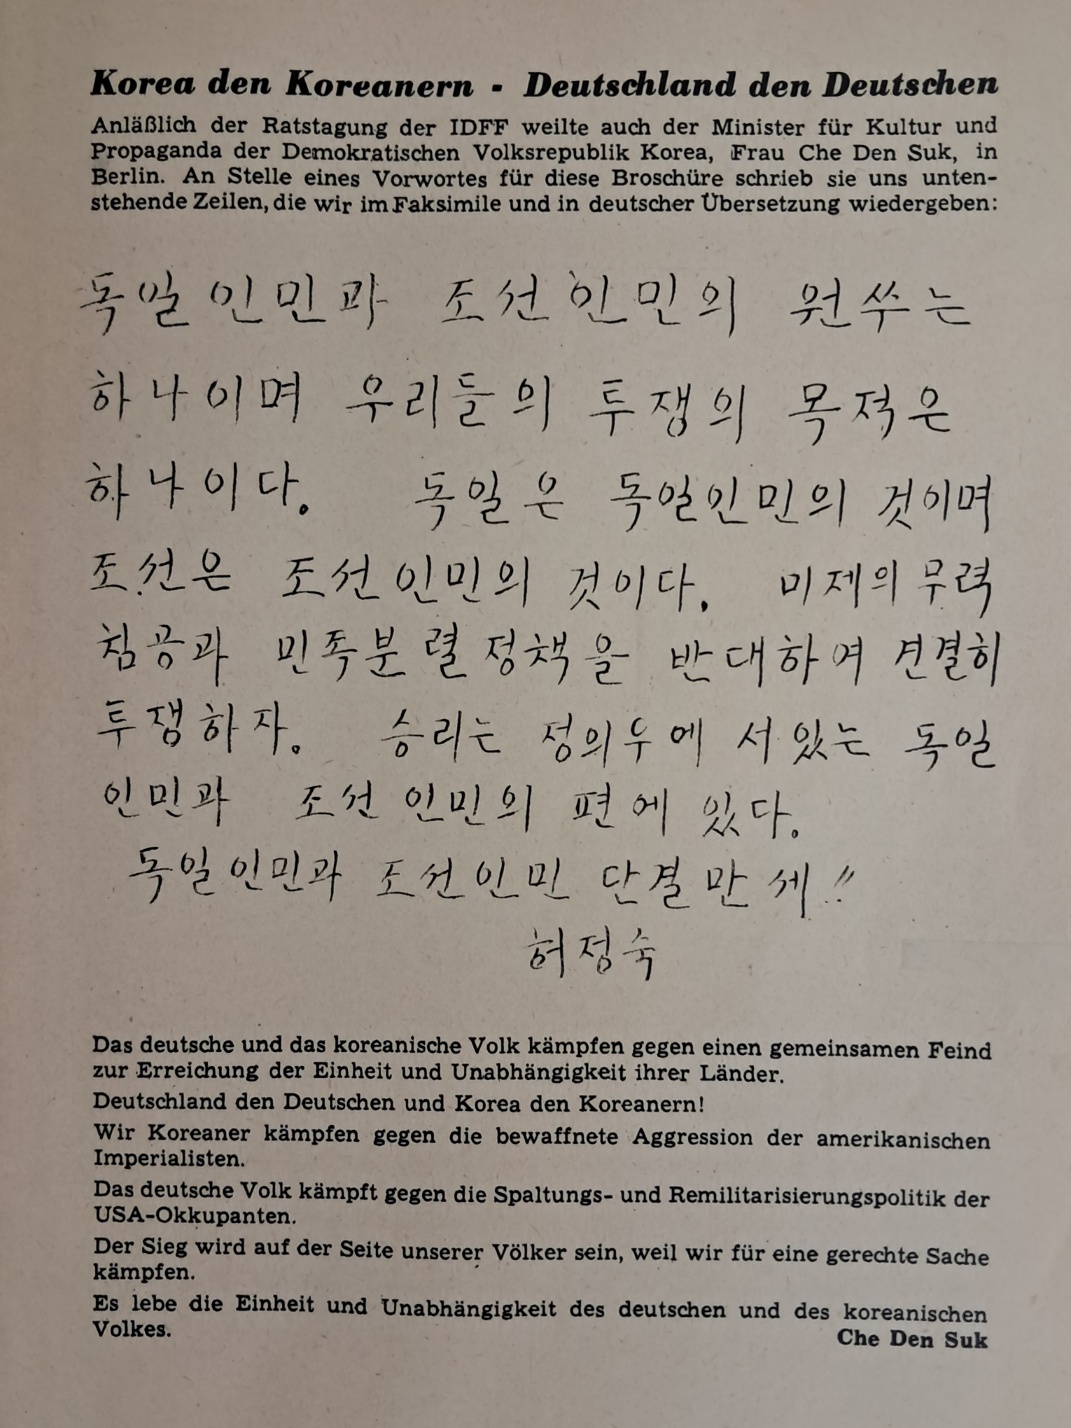 Korea den Koreanern - Deutschland den Deutschen
Anläßlich der Ratstagung der IDFF weilte auch der Minister für Kultur und
Propaganda der Demokratischen Volksrepublik Korea, Frau Che Den Suk, in
Berlin. An Stelle eines Vorwortes für diese Broschüre schrieb sie uns unten-
stehende Zeilen, die wir im Faksimile und in deutscher Übersetzung wiedergeben:
독일인민과 조선인민의 원쑤는
하나이며 우리들의 투쟁의 목적은
하나이다. 독일은 독일인민의 것이며
조선은 조선인민의 것이다. 미제의 무력
침공과 민족분렬정책을 반대하여 견결히
투쟁하자. 승리는 정의우에 서있는 독일
인민과 조선인민의 편에 있다.
독일인민과 조선인민 단결만세!!
허정숙
Das deutsche und das koreanische Volk kämpfen gegen einen gemeinsamen Feind
zur Erreichung der Einheit und Unabhängigkeit ihrer Länder.
Deutschland den Deutschen und Korea den Koreanern!
Wir Koreaner kämpfen gegen die bewaffnete Aggression der amerikanischen
Imperialisten.
Das deutsche Volk kämpft gegen die Spaltungs- und Remilitarisierungspolitik der
USA-Okkupanten.
Der Sieg wird auf der Seite unserer Völker sein, weil wir für eine gerechte Sache
kämpfen.
Es lebe die Einheit und Unabhängigkeit des deutschen und des koreanischen
Volkes.
Che Den Suk